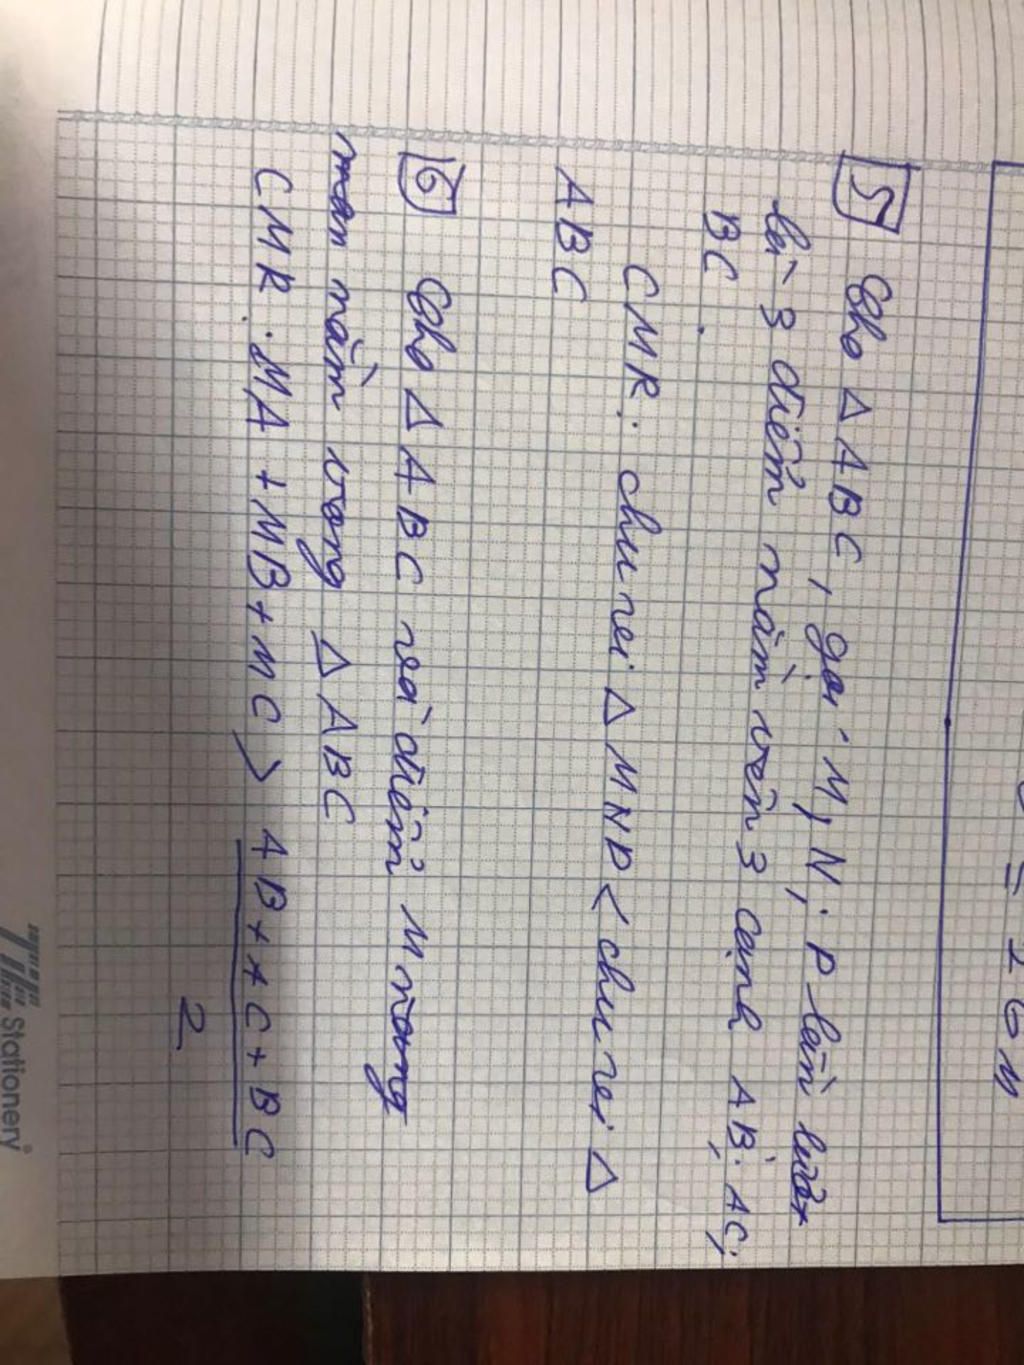 = 26 M
5 Cho △ ABC, gọi M, N; P lần lượt
là 3 điểm nằm trên 3 cạnh AB; AC;
BC.
CMR: chu vi △ MNP < chu vi △
ABC
6 Cho △ ABC và điểm M
nằm trong △ ABC
CMR: MA + MB + MC > AB + AC + BC
2
Stationery